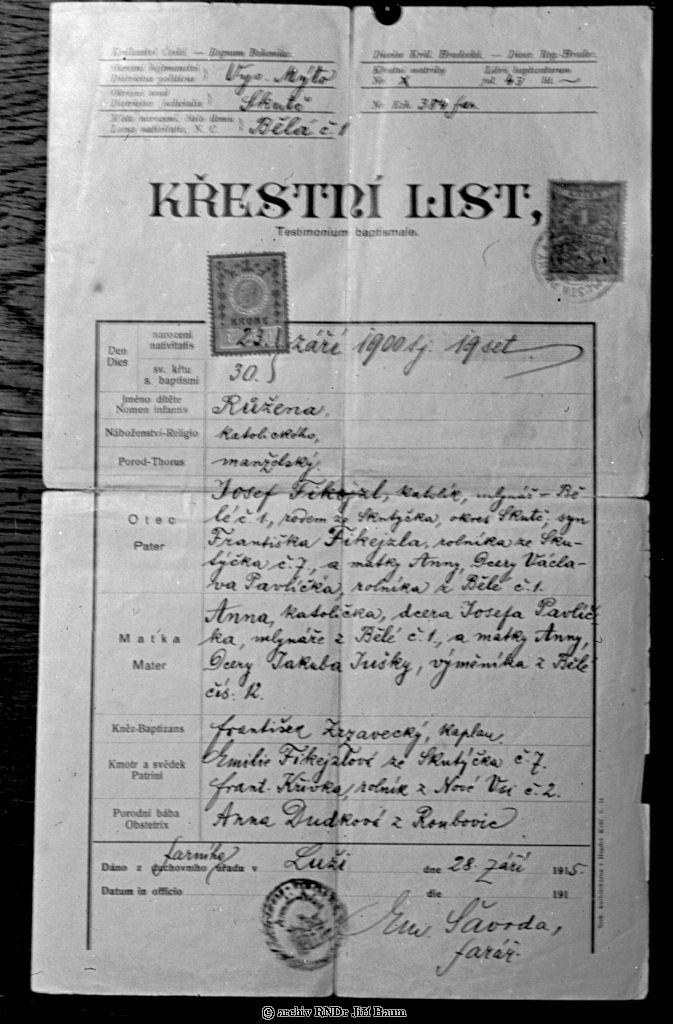 Království české — Regnum Bohemiae.
Okresní hejtmanství
Districtus politicus
Vys. Mýto
Okresní soud
Districtus judicialis
Skuteč
Místo narození, číslo domu
Locus nativitatis, N. C.
Bělá č. 1
Diecéze Král. Hradecká. — Dioec. Reg.-Hradec.
Křestní matriky
Liber baptisatorum
No X fol. 43 lit. ~
No Exh. 384 far.
KŘESTNÍ LIST,
Testimonium baptismale.
KRONE
Den
Dies
narození
nativitatis
23. září 1900 sj. 19 set
sv. křtu
s. baptismi
30.
Jméno dítěte
Nomen infantis
Růžena.
Náboženství-Religio
katolického,
Porod-Thorus
manželský.
Otec
Pater
Josef Fikejzl, katolík, mlynář – Bě-
lé č. 1, rodem ze Skutýčka, okres Skuteč, syn
Františka Fikejzla, rolníka ze Sku-
týčka č. 7, a matky Anny, dcery Václa-
va Pavlíčka, rolníka z Bělé č. 1.
Matka
Mater
Anna, katolička, dcera Josefa Pavlíč-
ka, mlynáře z Bělé č. 1, a matky Anny,
dcery Jakuba Jušky, výměníka z Bělé
čís. 12.
Kněz-Baptizans
František Zrzavecký, kaplan.
Kmotr a svědek
Patrini
Emilie Fikejzlová ze Skutýčka č. 7.
Frant. Křivka, rolník z Nové Vsi č. 2.
Porodní bába
Obstetrix
Anna Dudková z Roubovic
Dáno z duchovního úřadu v
farního
Luži
dne 28. září 1915.
Datum in officio
die 191
Em. Šavrda,
farář.
© archiv RNDr Jiří Baum